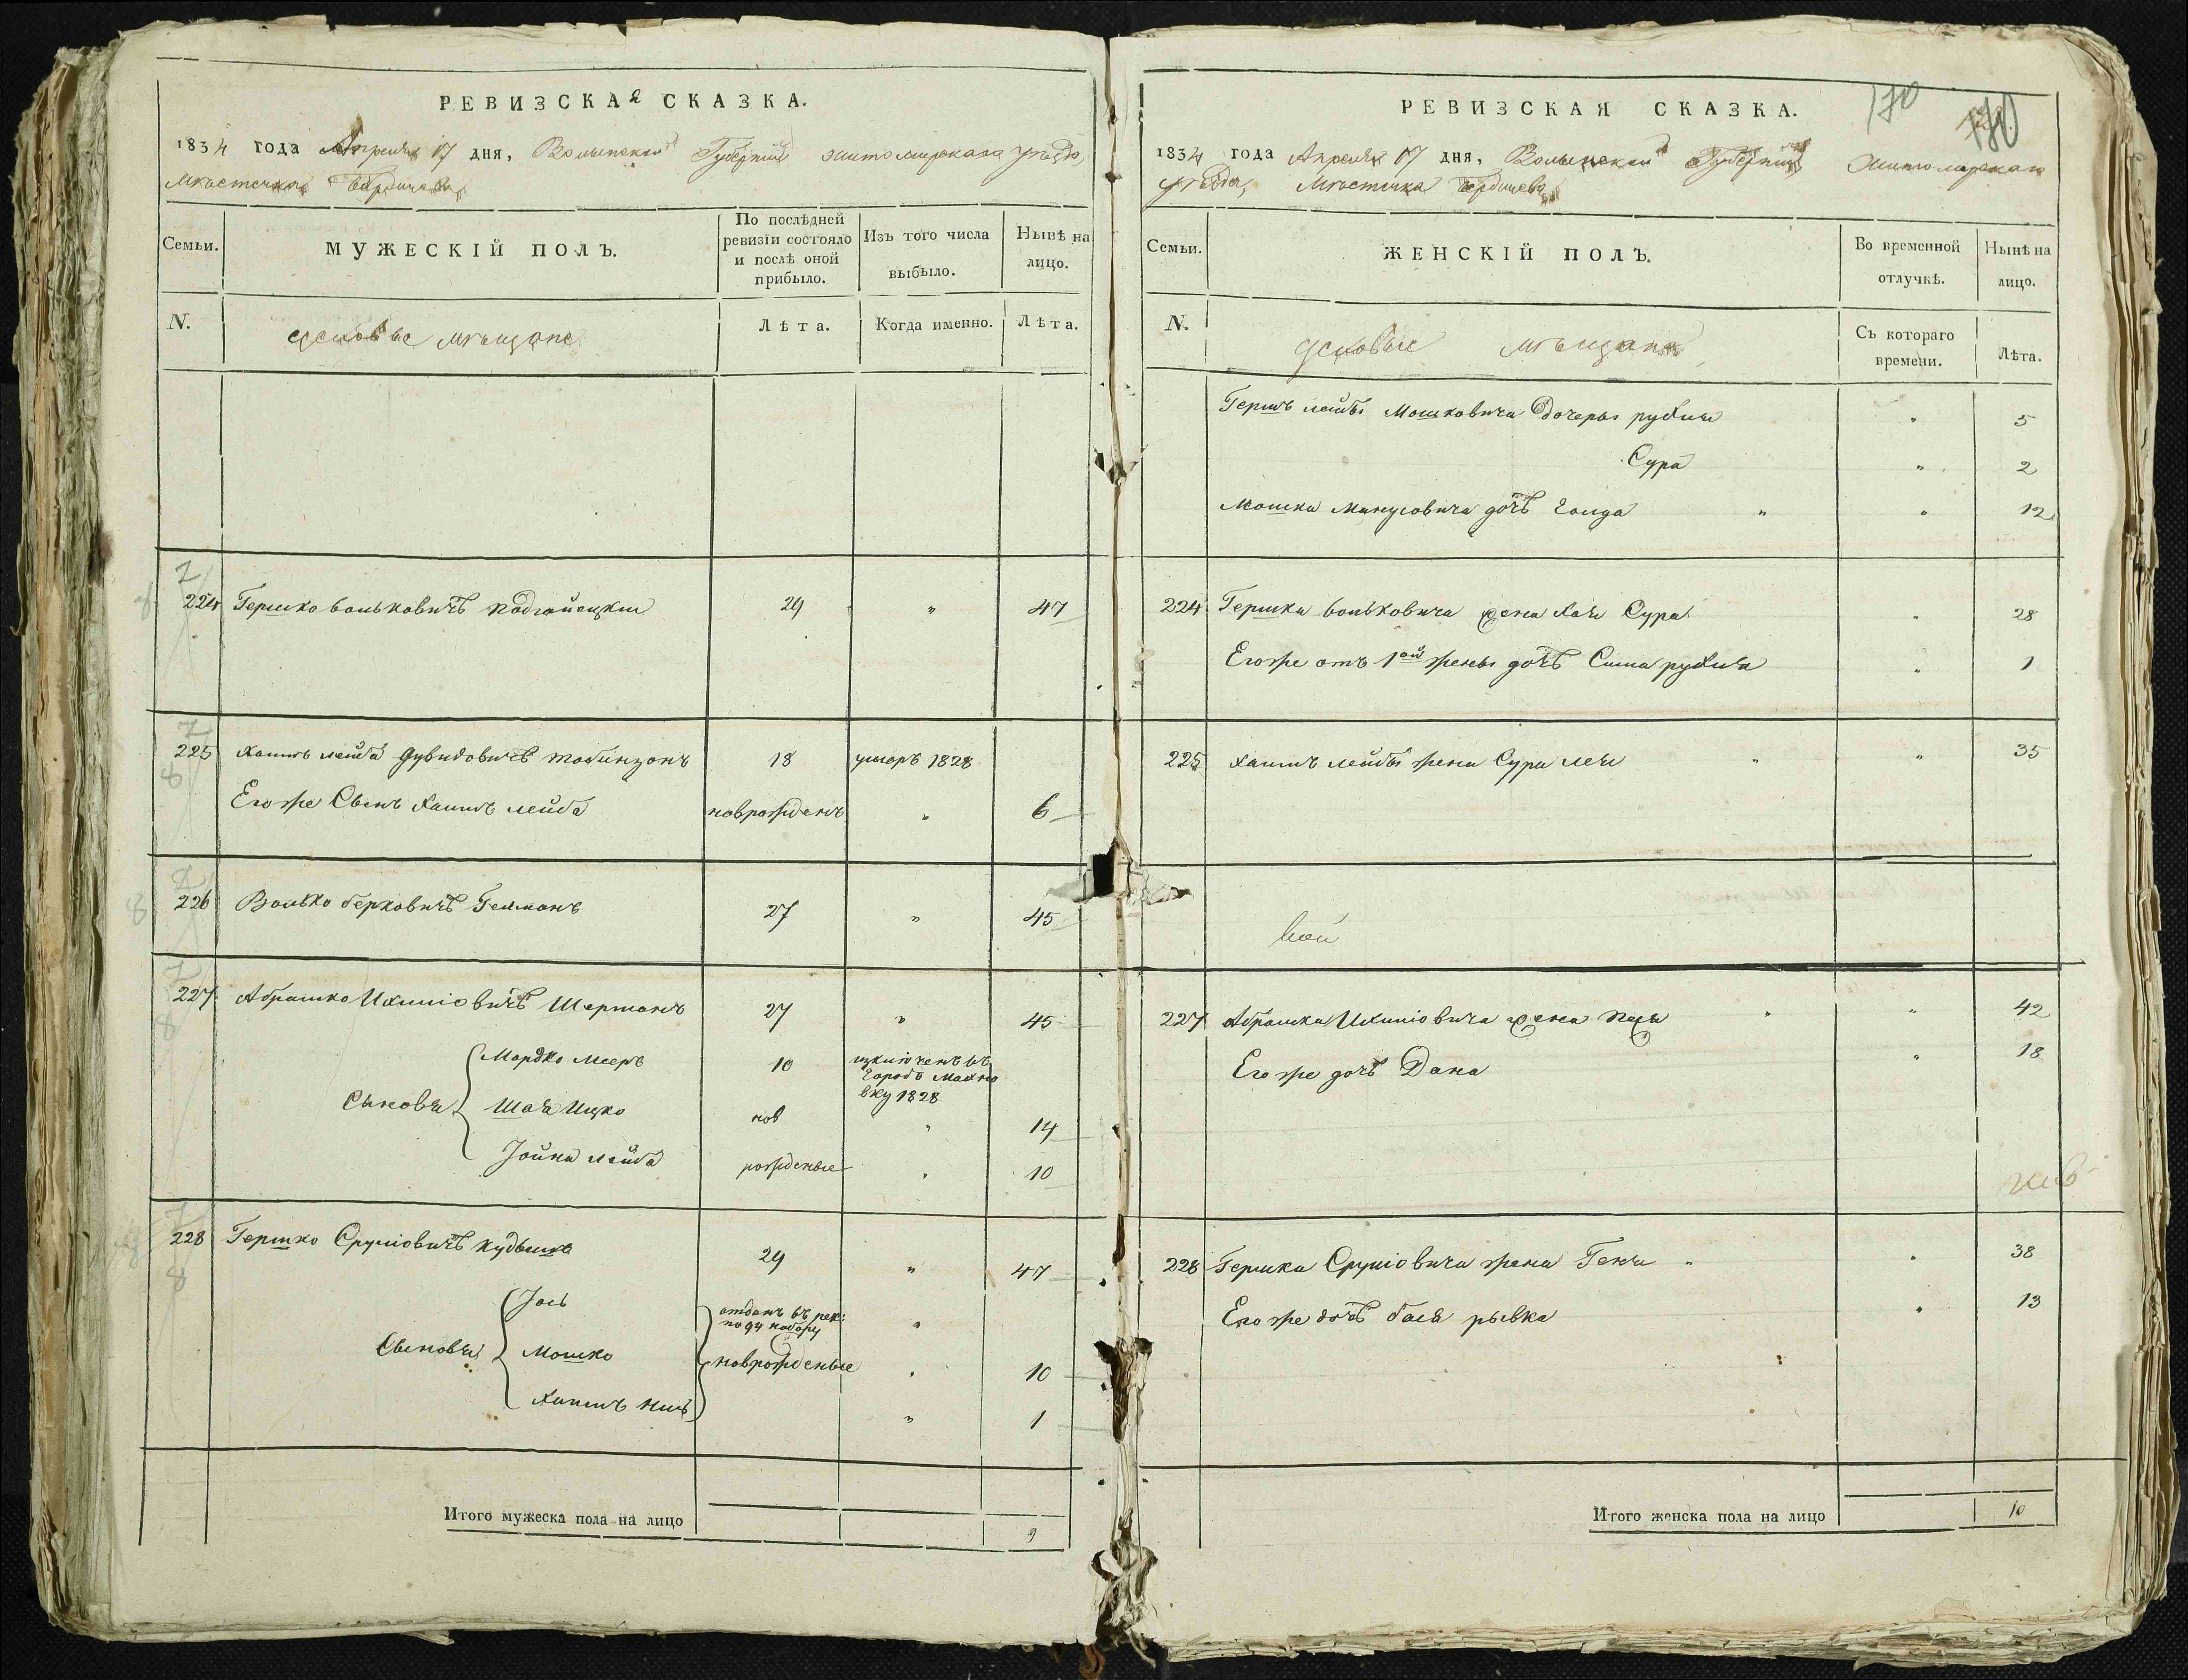 РЕВИЗСКАЯ СКАЗКА.
1834 года Апреля 17 дня, Волынской Губернии Житомирскаго уезда,
Местечка Бердичева
Семьи.
МУЖЕСКІЙ ПОЛЪ.
По послѣдней ревизіи состояло и послѣ оной прибыло.
Изъ того числа выбыло.
Нынѣ на лицо.
N.
мѣщане
Лѣта.
Когда именно.
Лѣта.
224 Гершко Волковичъ Подгаецкій 29 " 47
225 Хаимъ Лейба Дувидовичъ Табинзонъ 18 умаръ 1828
Егоже Сынъ Хаимъ Лейба новрожденъ " 6
226 Волько Берковичъ Гелманъ 27 " 45
227 Абрамко Ихиліовичъ Шерманъ 27 " 45
Сыновя
Мордко Мееръ 10 изключенъ въ
городъ Махно
вку 1828
Шая Ицко нов " 14
Іойна Лейба рожденые " 10
228 Гершко Сруліовичъ Кудышъ 29 " 47
Сыновя
Іось отданъ въ рек:
по 94 набору "
Мошко новрожденые " 10
Хаимъ " 1
Итого мужеска пола на лицо 9
РЕВИЗСКАЯ СКАЗКА.
170
170
1834 года Апреля 17 дня, Волынской Губернии Житомирскаго
уезда, Местечка Бердичева
Семьи.
ЖЕНСКІЙ ПОЛЪ.
Во временной отлучкѣ.
Нынѣ на лицо.
N.
мѣщане
Съ котораго времени.
Лѣта.
Гершъ Лейбы Мошковича дочеры Рухля " 5
Сура " 2
Мошка Манусовича дочъ Голда " " 12
224 Гершка Волковича жена Хая Сура " 28
Егоже отъ 1ой жены дочъ Сима Рухля " 1
225 Хаимъ Лейбы жена Сура Лея " " 35
227 Абрамка Ихиліовича жена Песя " " 42
Егоже дочъ Дана " 18
228 Гершка Сруліовича жена Геня " " 38
Егоже дочъ Бася Рывка " 13
Итого женска пола на лицо 10